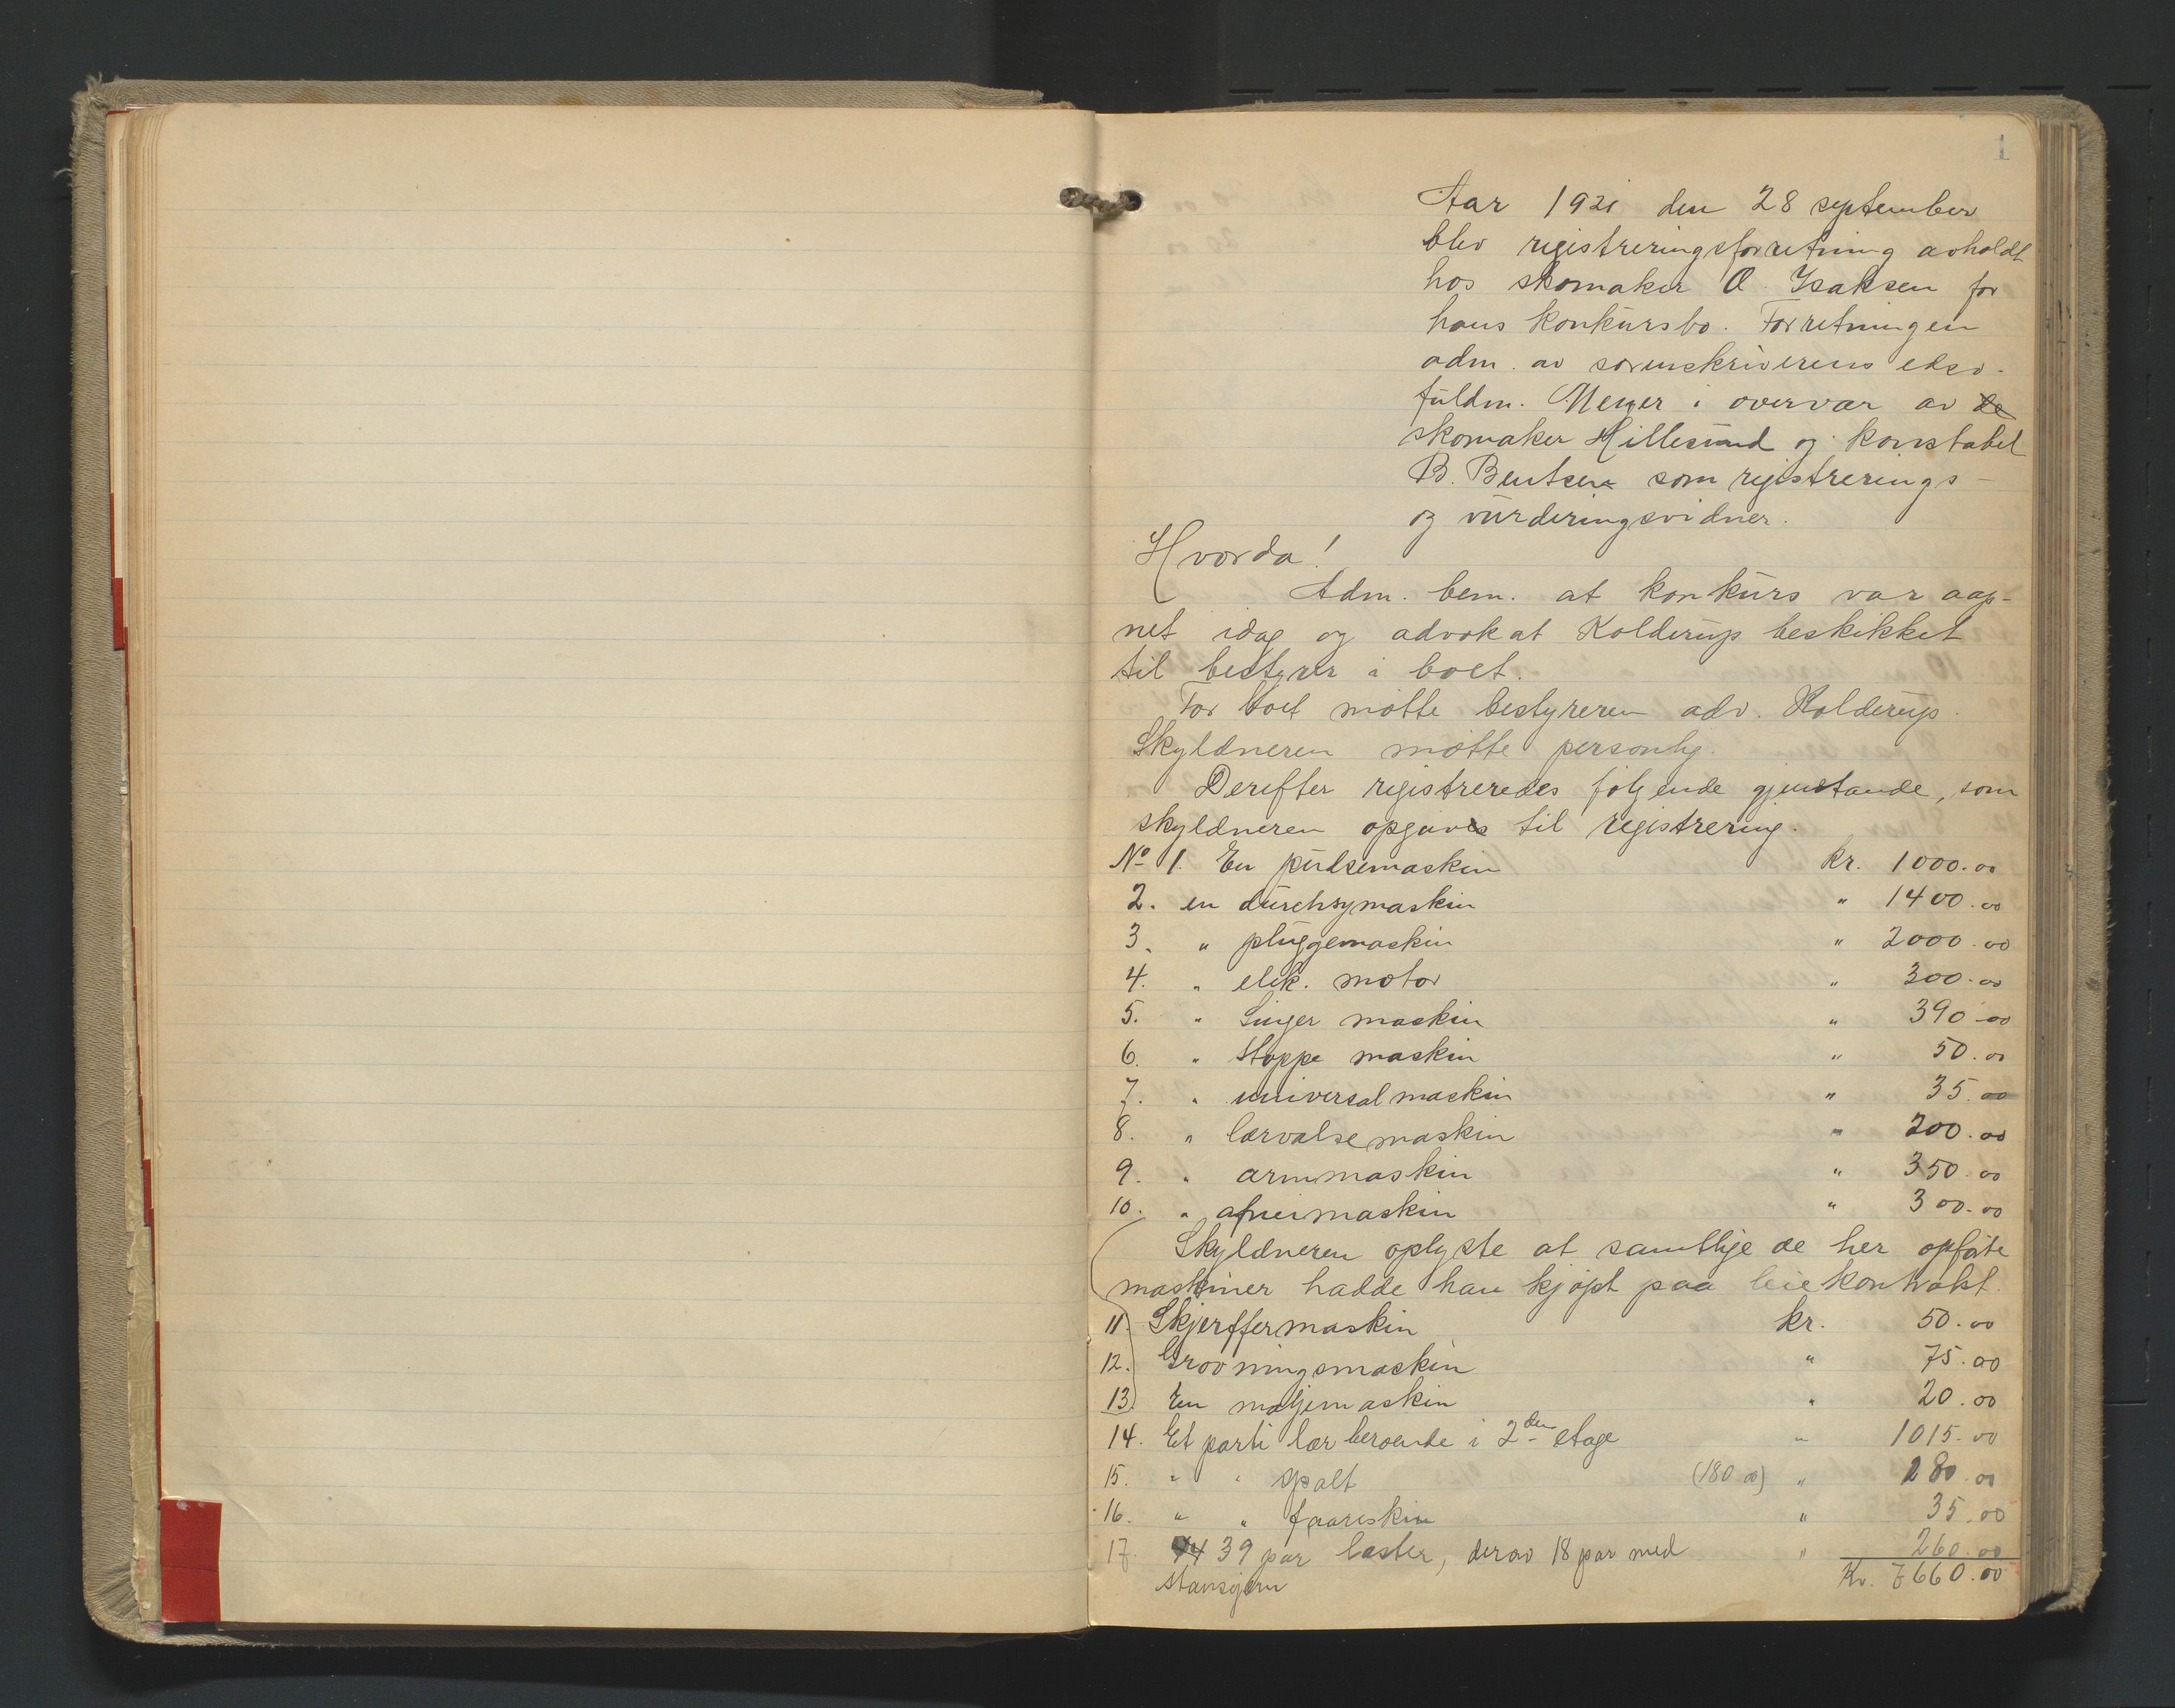 1
Aar 1921 den 28 september
blev registreringsforretning avholdt
hos skomaker O. Isaksen for
hans konkursbo. Forretningen
adm. av sorenskriverens edsv.
fuldm. Meyer i overvær av de
skomaker Hillesund og konstabel
B. Bentsen som registrerings-
og vurderingsvidner.
Hvorda!
Adm. bem. at konkurs var aap-
net idag og advokat Kolderup beskikket
til bestyrer i boet.
For boet møtte bestyreren adv. Kolderup.
Skyldneren møtte personlig.
Derefter registreredes følgende gjenstande, som
skyldneren opgaves til registrering.
No 1. En pudsemaskin kr. 1000.00
2. en durchsymaskin " 1400.00
3. " pluggemaskin " 2000.00
4. " elek. motor " 300.00
5. " Singer maskin " 390.00
6. " stoppe maskin " 50.00
7. " universalmaskin " 35.00
8. " lærvalsemaskin " 200.00
9. " armmaskin " 350.00
10. " afneimaskin " 300.00
Skyldneren oplyste at samtlige de her opførte
maskiner hadde han kjøpt paa leiekontrakt.
11. Skjerffermaskin kr. 50.00
12. Grovningsmaskin " 75.00
13. En maljemaskin " 20.00
14. Et parti lær beroende i 2den etage " 1015.00
15. " " spalt (180 00) " 180.00
16. " " faareskin " 35.00
17. 44 39 par læster, derav 18 par med " 260.00
stansejern Kr. 7660.00